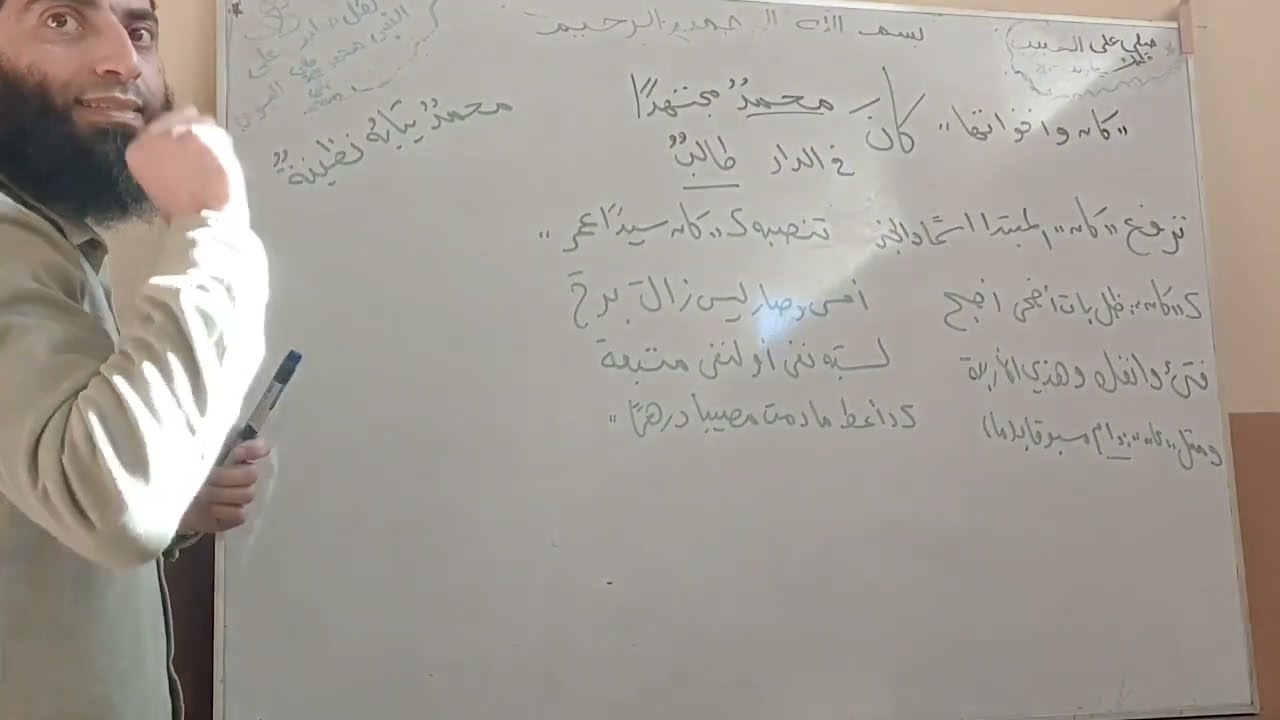 بسم الله الرحمن الرحيم
صلي على الحبيب
قلبك
"كان وأخواتها" كان محمدٌ مجتهدًا
في الدار طالبٌ
محمدٌ ثيابُه نظيفةٌ
ترفع "كان" المبتدا اسمًا والخبر تنصبه ك"كان سيدًا عمر"
ك"كان": ظل بات أضحى أصبح أمسى وصار ليس زال برح
فتئ وانفك وهذي الأربعة لشبه نفي أو لنفي متبعة
ومثل "كان": دام مسبوقا ب(ما) كأعط ما دمت مصيبا درهمًا"